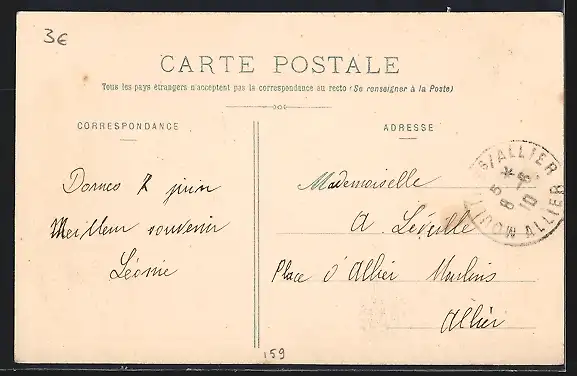 3€
CARTE POSTALE
Tous les pays étrangers n'acceptent pas la correspondance au recto (Se renseigner à la Poste)
CORRESPONDANCE
Dornes 7 juin
Meilleur souvenir
Léonie
ADRESSE
Mademoiselle
A. Léveillé
Place d'Allier Moulins
Allier
S/ALLIER
8 5
10
MOULINS ALLIER
159